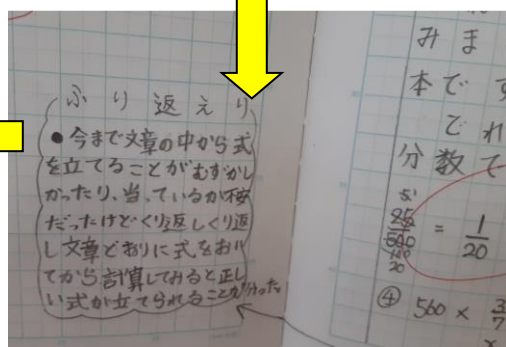 ふり返えり
●今まで文章の中から式
を立てることがむずかし
かったり、当っているか不安
だったけどくり返しくり返
し文章どおりに式をおい
てから計算してみると正し
い式が立てられることが分かった
みま
本です
でれ
分数で
= 1/20
④ 560 × 3/7